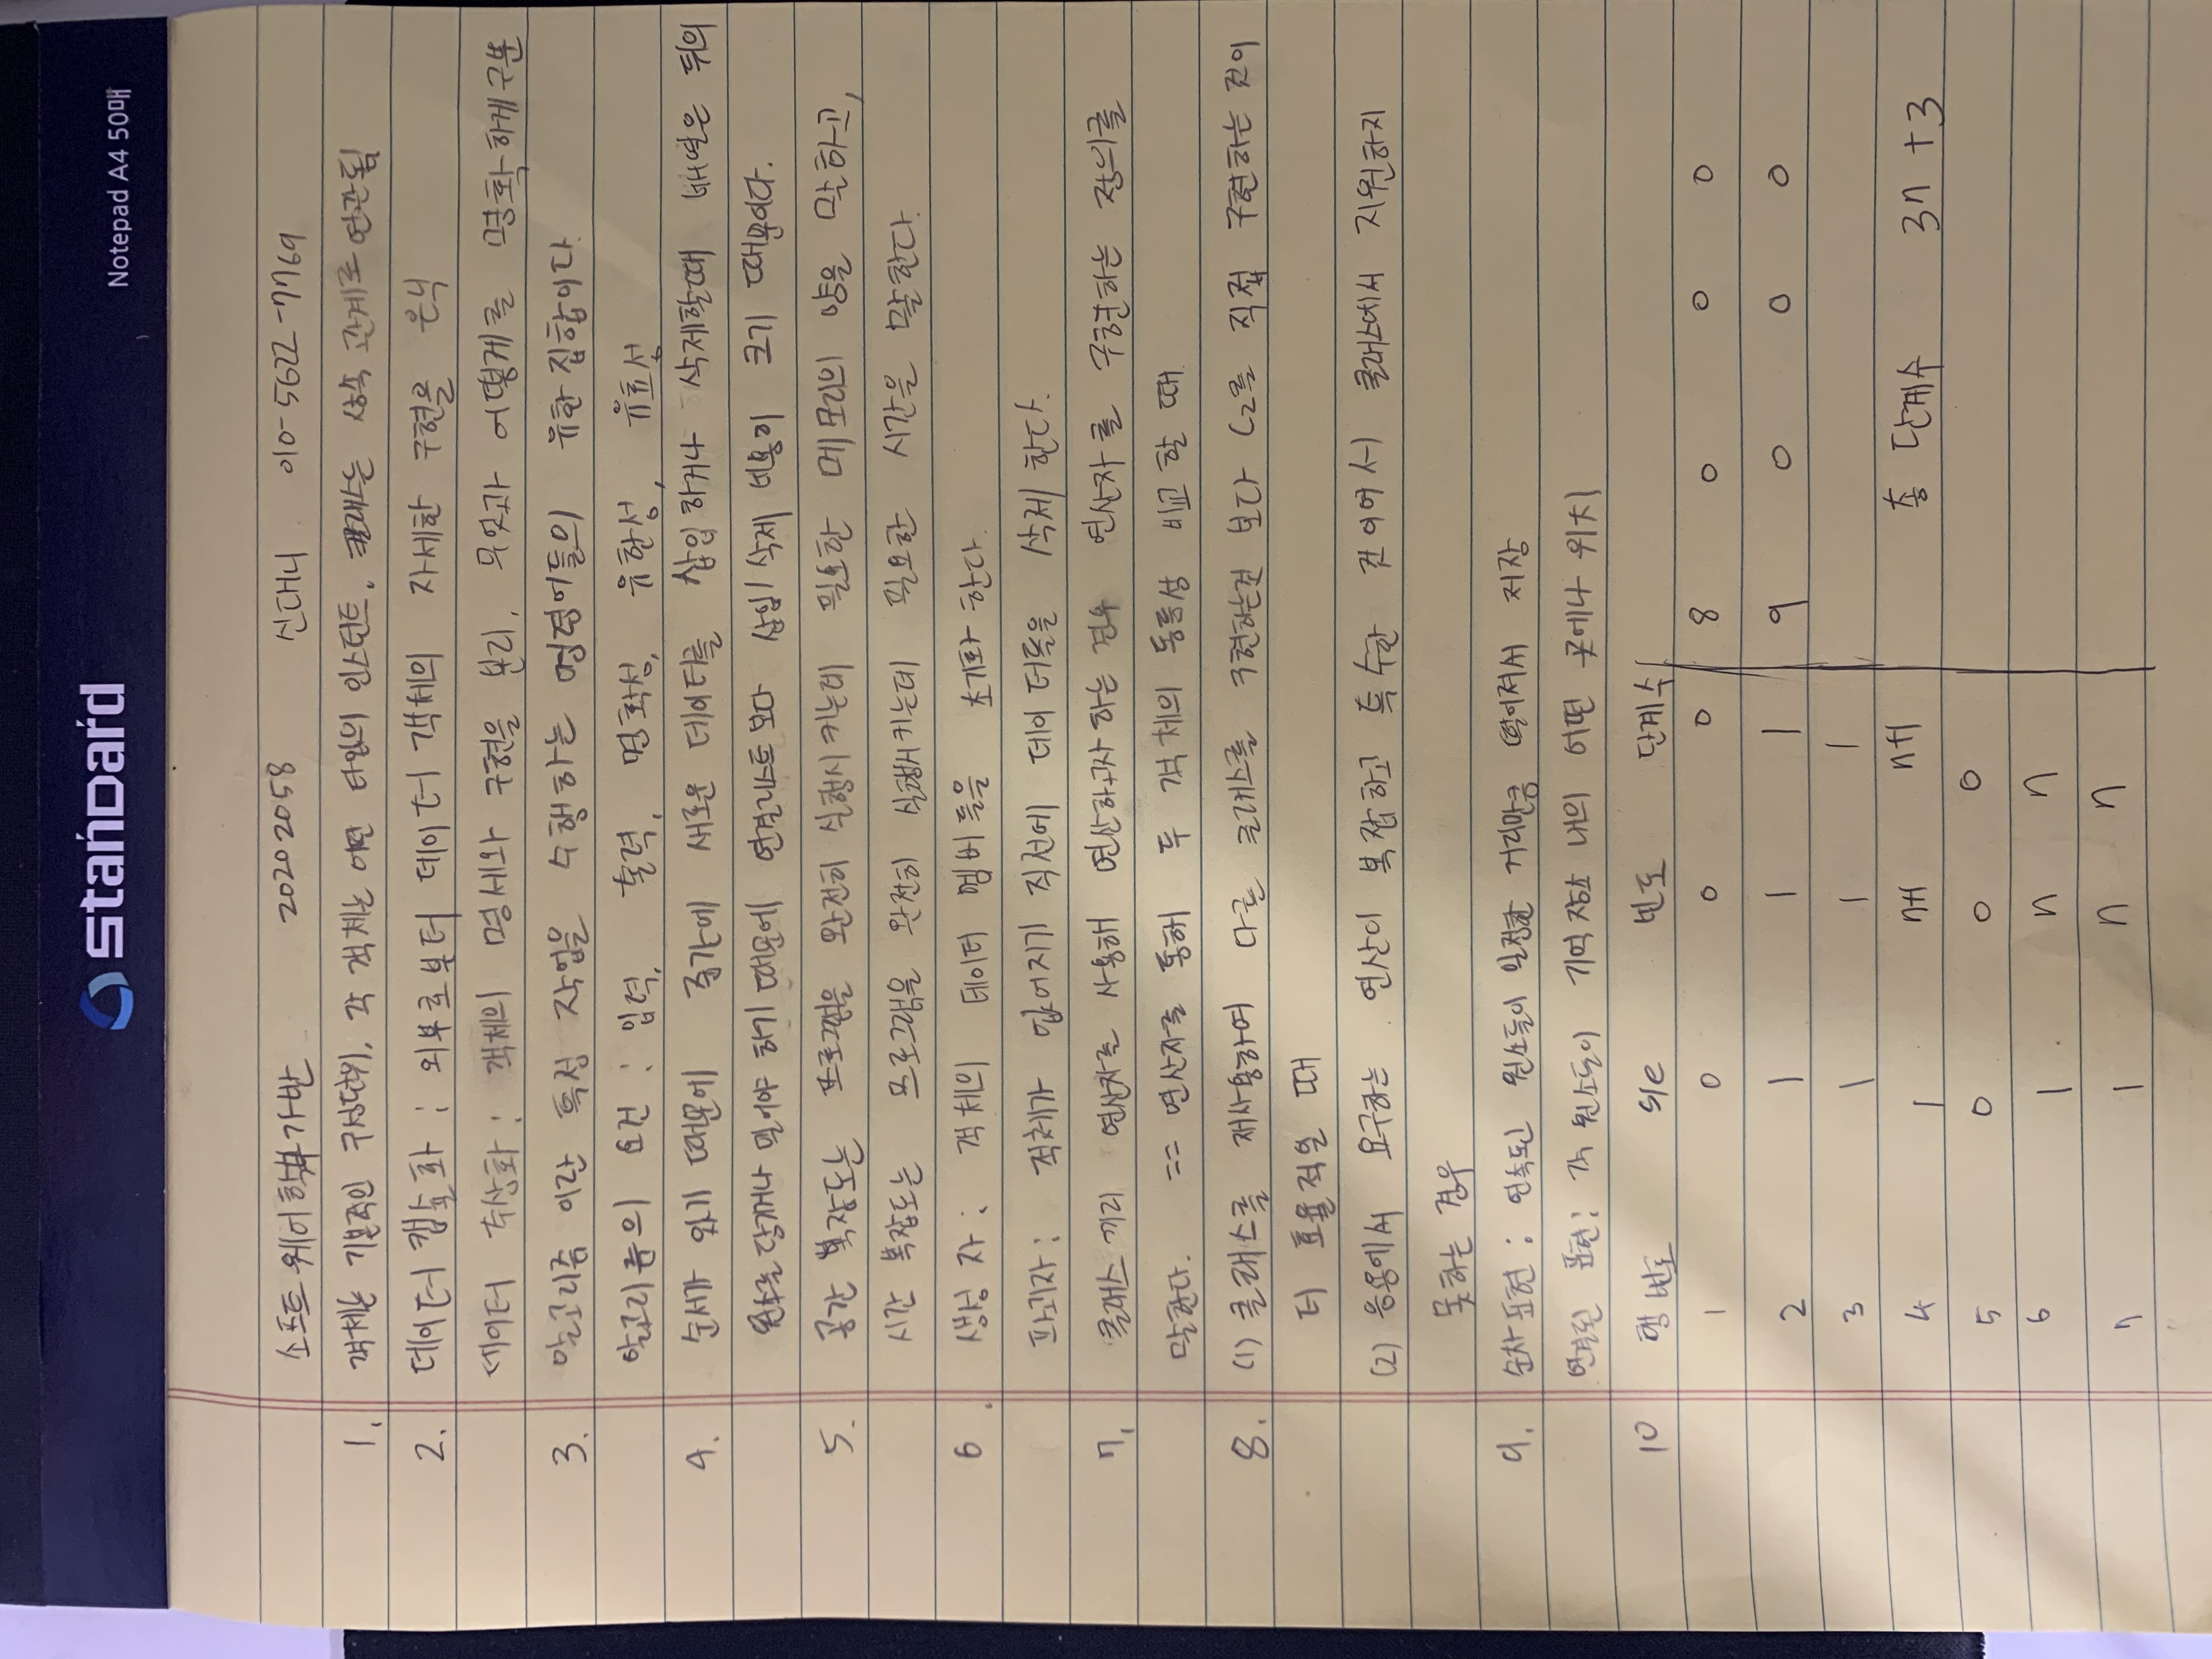 standard
Notepad A4 50매
소프트웨어학부 가반 20202058 신대니 010-5622-7769
1. 객체는 기본적인 구성단위. 각 객체는 어떤 타입의 인스턴트. 클래스는 상속 관계로 연관됨
2. 데이터 캡슐화 : 외부로부터 데이터 객체의 자세한 구현을 은닉
데이터 추상화 : 객체의 명세와 구현을 분리. 무엇과 어떻게를 명확하게 구분
3. 알고리즘 이란 특정 작업을 수행하는 명령어들의 유한 집합이다.
알고리즘의 요건 : 입력, 출력, 명확성, 유한성, 유효성
4. 순서가 있기 때문에 중간에 새로운 데이터를 삽입하거나 삭제할때 배열은 뒤의
원소를 당기거나 밀어야 하기 때문에 연결리스트 보다 삽입/삭제 비용이 크기 때문이다.
5. 공간 복잡도는 프로그램을 완전히 실행시키는데 필요한 메모리의 양을 말하고,
시간 복잡도는 프로그램을 완전히 실행시키는데 필요한 시간을 말한다.
6. 생성자 : 객체의 데이터 멤버들을 초기화 한다.
파괴자 : 객체가 없어지기 직전에 데이터들을 삭제 한다.
7. 클래스 끼리 연산자를 사용해 연산하고자 하는 경우 연산자를 구현하는 정의를
말한다. == 연산자를 통해 두 객체의 동등성 비교 할 때
8. (1) 클래스를 재사용하여 다른 클래스를 구현하는것 보다 C2를 직접 구현하는 것이
더 효율적일 때
(2) 응용에서 요구하는 연산이 복잡하고 특수한 것이어서 클래스에서 지원하지
못하는 경우
9. 순차표현 : 연속된 원소들이 일정한 거리만큼 떨어져서 저장
연결된 표현 : 각 원소들이 기억장소 내의 어떤 곳에나 위치
10 행 빈도 s/e 빈도 단계수
1 0 0 0 8 0 0 0
2 1 1 1 9 0 0 0
3 1 1 1
4 1 n+1 n+1 총 단계수 3n+3
5 0 0 0
6 1 n n
7 1 n n